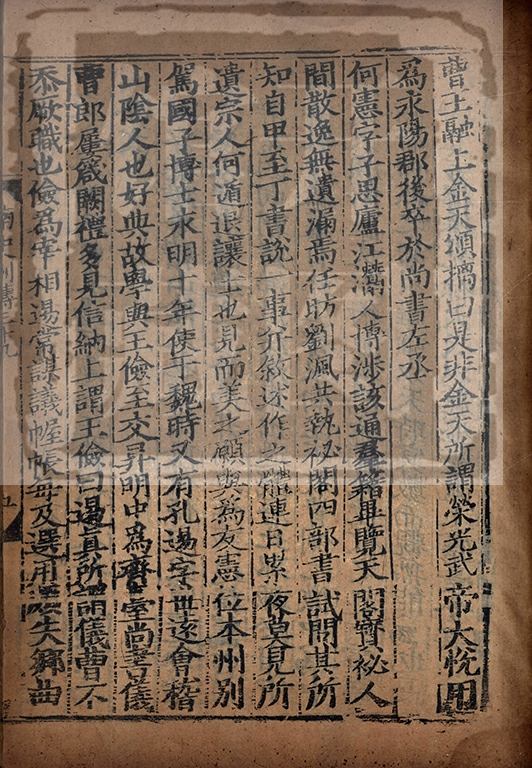 曹王融上金天頌摛曰是非金天所謂榮光武帝大悅用
爲永陽郡後卒於尚書左丞
何憲字子思廬江灊人博涉該通羣籍畢覽天閣寶祕人
間散逸無遺漏焉任昉劉渢共執祕閣四部書試問其所
知自甲至丁書說一事并敘述作之體連日累夜莫見所
遺宗人何遁退讓士也見而美之願與爲友憲位本州別
駕國子博士永明十年使于魏時又有孔逷字世遠會稽
山陰人也好典故學與王儉至交昇明中爲齊臺尚書儀
曹郎屢箴闕禮多見信納上謂王儉曰逷真所謂儀曹不
忝厥職也儉爲宰相逷常謀議幄帳每及選用失鄉曲
南史列傳三十九